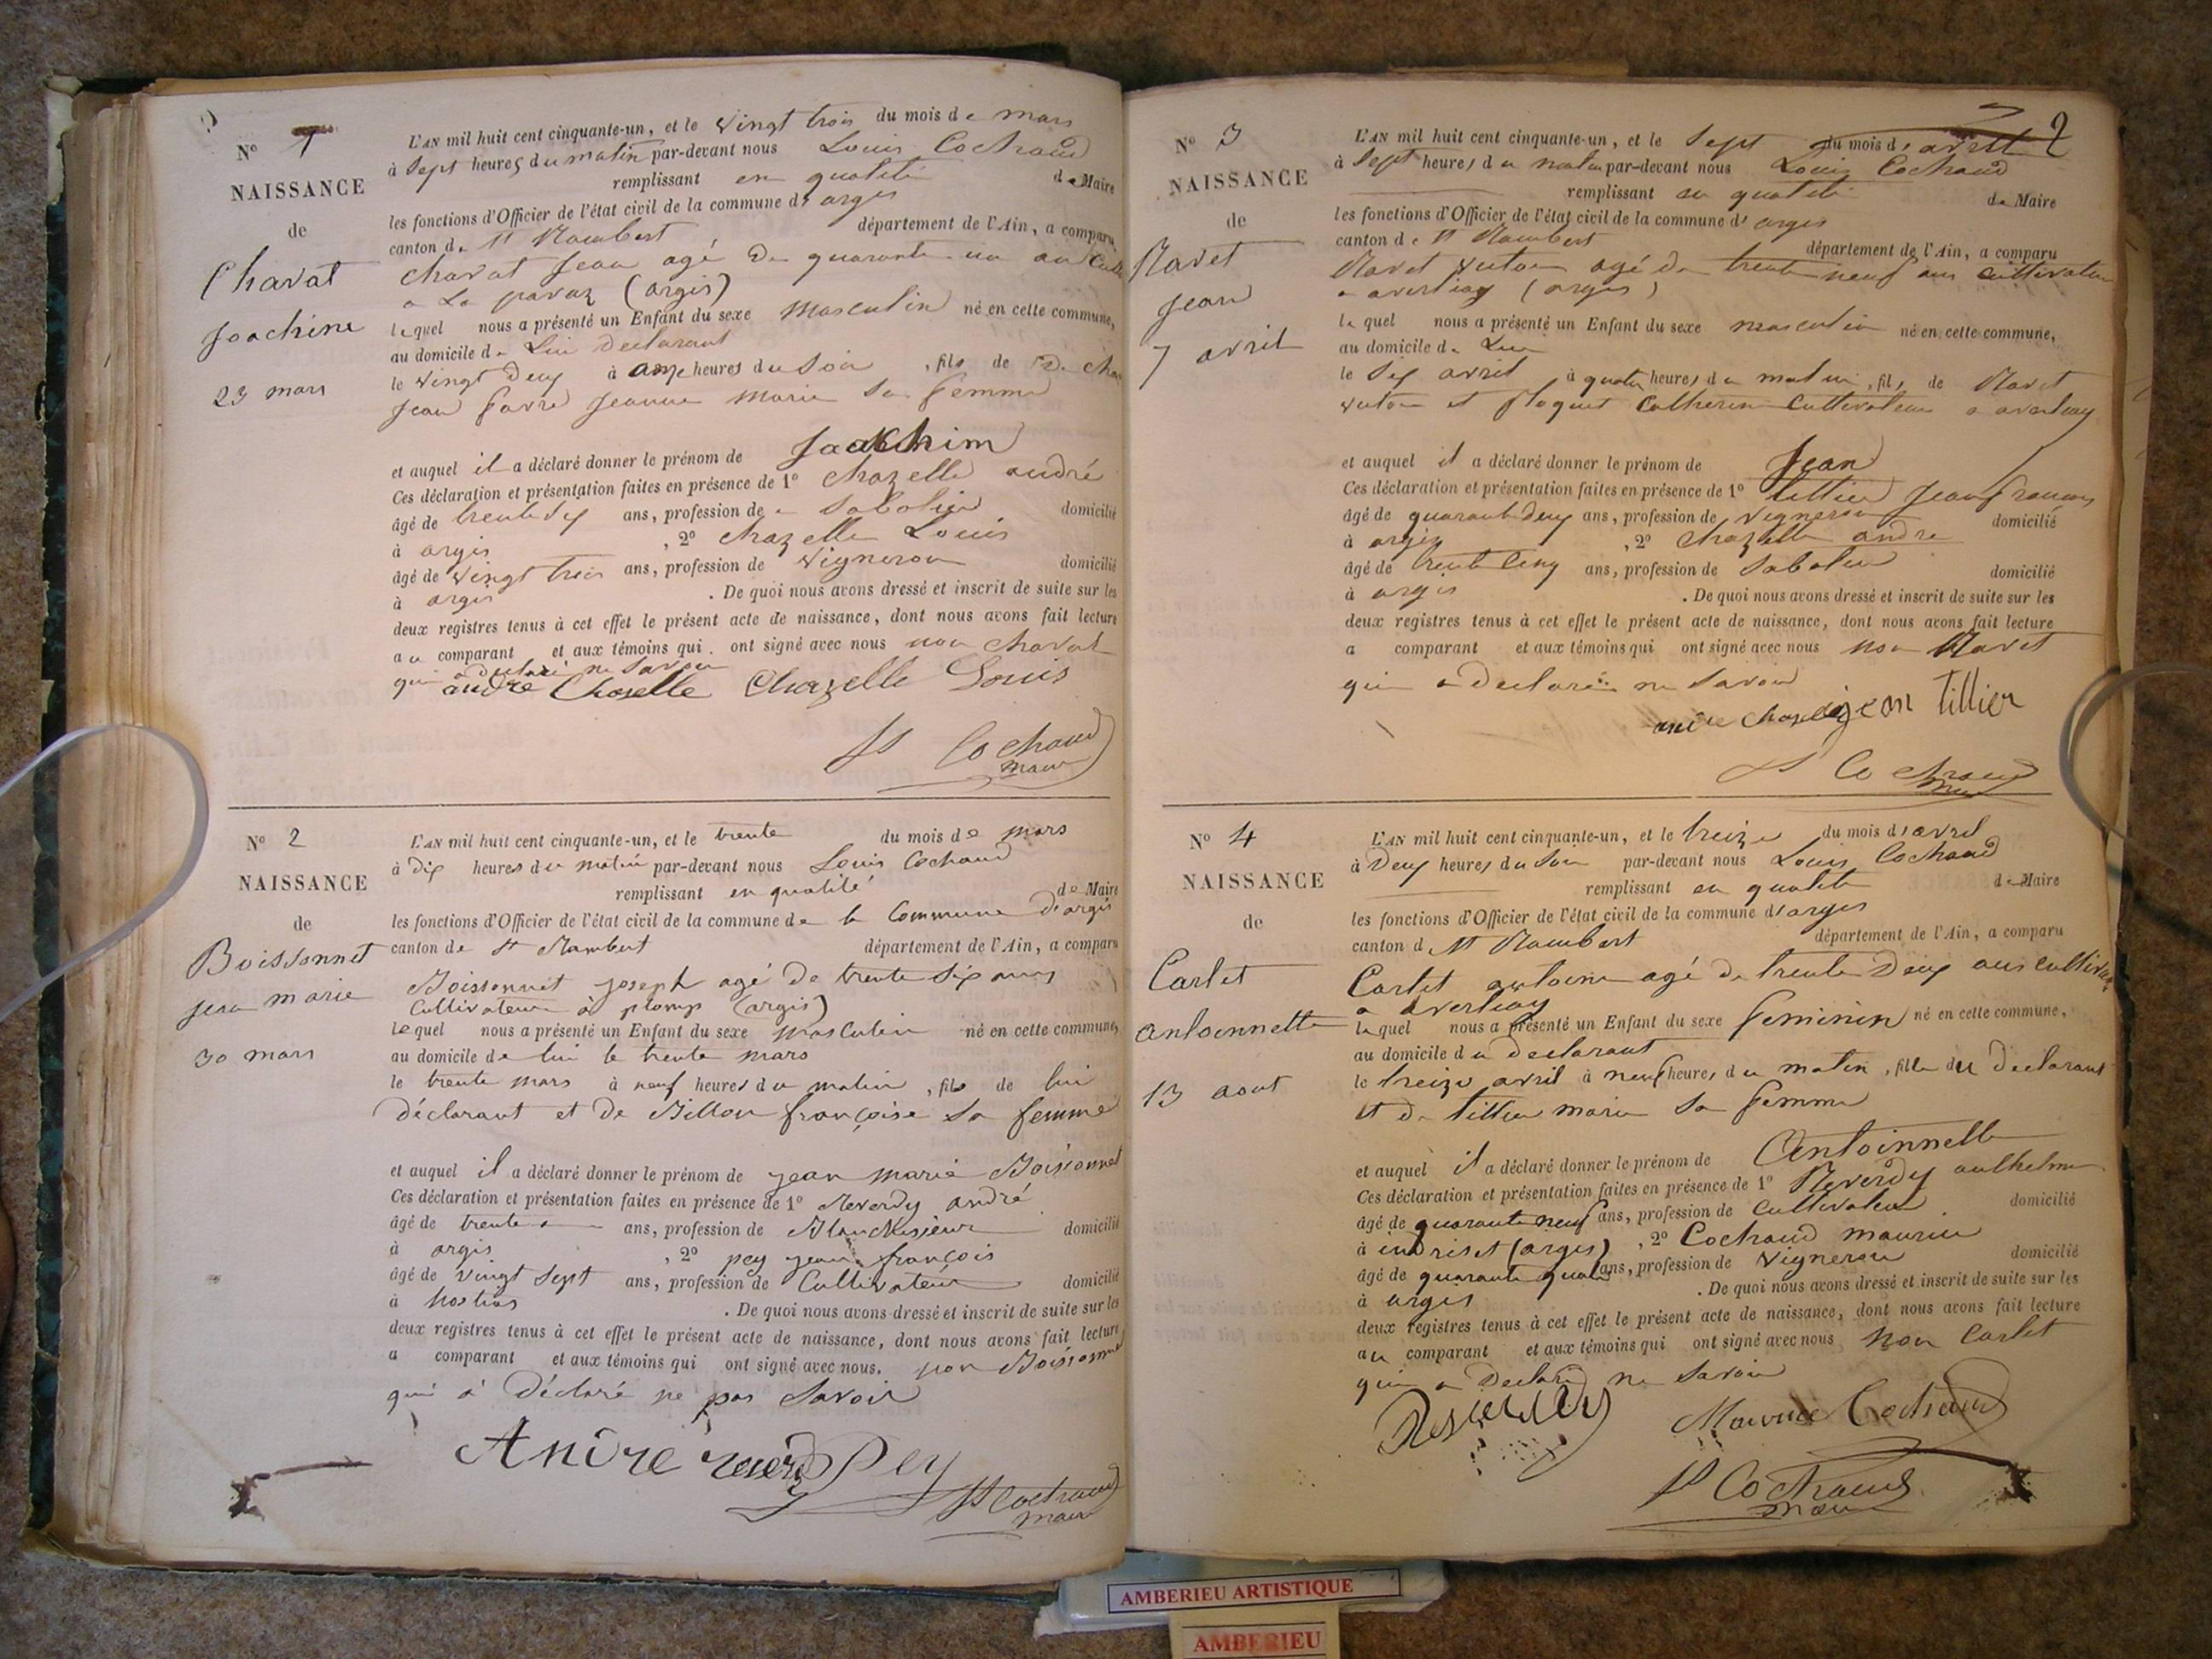 N° 1
NAISSANCE
de
Chavat
Joachine
23 mars
L'AN mil huit cent cinquante-un, et le vingt trois du mois de mars
à sept heures du matin par-devant nous Louis Cochaud
remplissant en qualité de Maire
les fonctions d'Officier de l'état civil de la commune d' argis
canton de St Rambert département de l'Ain, a comparu
Chavat Jean agé de quarante un an
a La (argis)
lequel nous a présenté un Enfant du sexe masculin né en cette commune,
au domicile de Lui declarant
le vingt deux à onze heures du soir, fils de
Jean favre Jeanne marie sa femme
et auquel il a déclaré donner le prénom de Joachim
Ces déclaration et présentation faites en présence de 1° Chazelle andré
âgé de trente six ans, profession de sabotier domicilié
à argis, 2° Chazelle Louis
âgé de vingt trois ans, profession de vigneron domicilié
à argis. De quoi nous avons dressé et inscrit de suite sur les
deux registres tenus à cet effet le présent acte de naissance, dont nous avons fait lecture
au comparant et aux témoins qui ont signé avec nous non Chavat
qui a declaré ne savoir
andre Chazelle Chazelle Louis
Cochaud
maire
N° 2
NAISSANCE
de
Boissonnet
jean marie
30 mars
L'AN mil huit cent cinquante-un, et le trente du mois de mars
à dix heures du matin par-devant nous Louis Cochaud
remplissant en qualité de Maire
les fonctions d'Officier de l'état civil de la commune de la Commune d'argis
canton de St Rambert département de l'Ain, a comparu
Boissonnet joseph agé de trente six ans
Cultivateur à plomp (argis)
lequel nous a présenté un Enfant du sexe masculin né en cette commune,
au domicile de lui le trente mars
le trente mars à neuf heures du matin, fils de lui
déclarant et de Billon françoise sa femme
et auquel il a déclaré donner le prénom de jean marie Boissonnet
Ces déclaration et présentation faites en présence de 1° Reverdy andré
âgé de trente ans, profession de Blanchisseur domicilié
à argis, 2° pey jean françois
âgé de vingt sept ans, profession de Cultivateur domicilié
à hostias. De quoi nous avons dressé et inscrit de suite sur les
deux registres tenus à cet effet le présent acte de naissance, dont nous avons fait lecture
a comparant et aux témoins qui ont signé avec nous. non Boissonnet
qui a déclaré ne pas savoir
André reverdy Pey
Cochaud
maire
2
N° 3
NAISSANCE
de
Ravet
Jean
7 avril
L'AN mil huit cent cinquante-un, et le sept du mois d' avril
à sept heures du matin par-devant nous Louis Cochaud
remplissant en qualité de Maire
les fonctions d'Officier de l'état civil de la commune d' argis
canton de St Rambert département de l'Ain, a comparu
Ravet agé de trente neuf ans cultivateur
a averliay (argis)
lequel nous a présenté un Enfant du sexe masculin né en cette commune,
au domicile de Lui
le six avril à quatre heures du matin, fils de Ravet
et Catherine Cultivateur a averliay
et auquel il a déclaré donner le prénom de Jean
Ces déclaration et présentation faites en présence de 1° tillier Jean francois
âgé de quarante deux ans, profession de vigneron domicilié
à argis, 2° Chazelle andre
âgé de trente cinq ans, profession de sabotier domicilié
à argis. De quoi nous avons dressé et inscrit de suite sur les
deux registres tenus à cet effet le présent acte de naissance, dont nous avons fait lecture
a comparant et aux témoins qui ont signé avec nous non Ravet
qui a declaré ne savoir
andre Chazelle jean Tillier
Cochaud
maire
N° 4
NAISSANCE
de
Carlet
antoinnette
13 aout
L'AN mil huit cent cinquante-un, et le treize du mois d'avril
à deux heures du soir par-devant nous Louis Cochaud
remplissant en qualité de Maire
les fonctions d'Officier de l'état civil de la commune d'argis
canton d St Rambert département de l'Ain, a comparu
Carlet antoine agé de trente deux ans cultivateur
a averliay
lequel nous a présenté un Enfant du sexe feminin né en cette commune,
au domicile du declarant
le treize avril à neuf heures du matin, fille du declarant
et de tillier marie sa femme
et auquel il a déclaré donner le prénom de Antoinnette
Ces déclaration et présentation faites en présence de 1° Reverdy anthelme
âgé de quarante neuf ans, profession de cultivateur domicilié
à indriset (argis), 2° Cochaud maurice
âgé de quarante quatre ans, profession de vigneron domicilié
à argis. De quoi nous avons dressé et inscrit de suite sur les
deux registres tenus à cet effet le présent acte de naissance, dont nous avons fait lecture
au comparant et aux témoins qui ont signé avec nous non Carlet
qui a declaré ne savoir
Maurice Cochaud
Cochaud
maire
AMBERIEU ARTISTIQUE
AMBERIEU